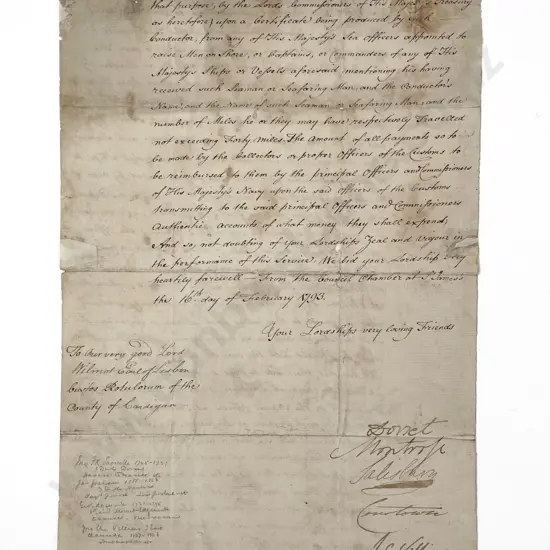 that purpose, by the Lords Commissioners of His Majesty's Treasury
as heretofore) upon a Certificate being produced by such
Conductor, from any of His Majesty's Sea Officers appointed to
raise Men on Shore, or Captains, or Commanders of any of His
Majesty's Ships or Vessels aforesaid mentioning his having
received such Seaman or Seafaring Man, and the Conductor's
Name, and the Name of such Seaman, or Seafaring Man, and the
number of Miles he or they may have respectively Travelled
not exceeding Forty Miles. The Amount of all payments so to
be made by the Collectors or proper Officers of the Customs to
be reimbursed to them by the principal Officers and Commissioners
of His Majesty's Navy upon the said Officers of the Customs
transmitting to the said principal Officers and Commissioners
Authentic accounts of what money they shall expend;
And so, not doubting of your Lordships Zeal and Vigour in
the performance of this Service. We bid your Lordship very
heartily farewell — From the Council Chamber at St James's
the 16th day of February 1793.
Your Lordships very loving Friends
To Our very good Lord
Wilmot Earl of Lisben
Custos Rotulorum of the
County of Cardigan
Dorset
Montrose
Salisbury
Courtown